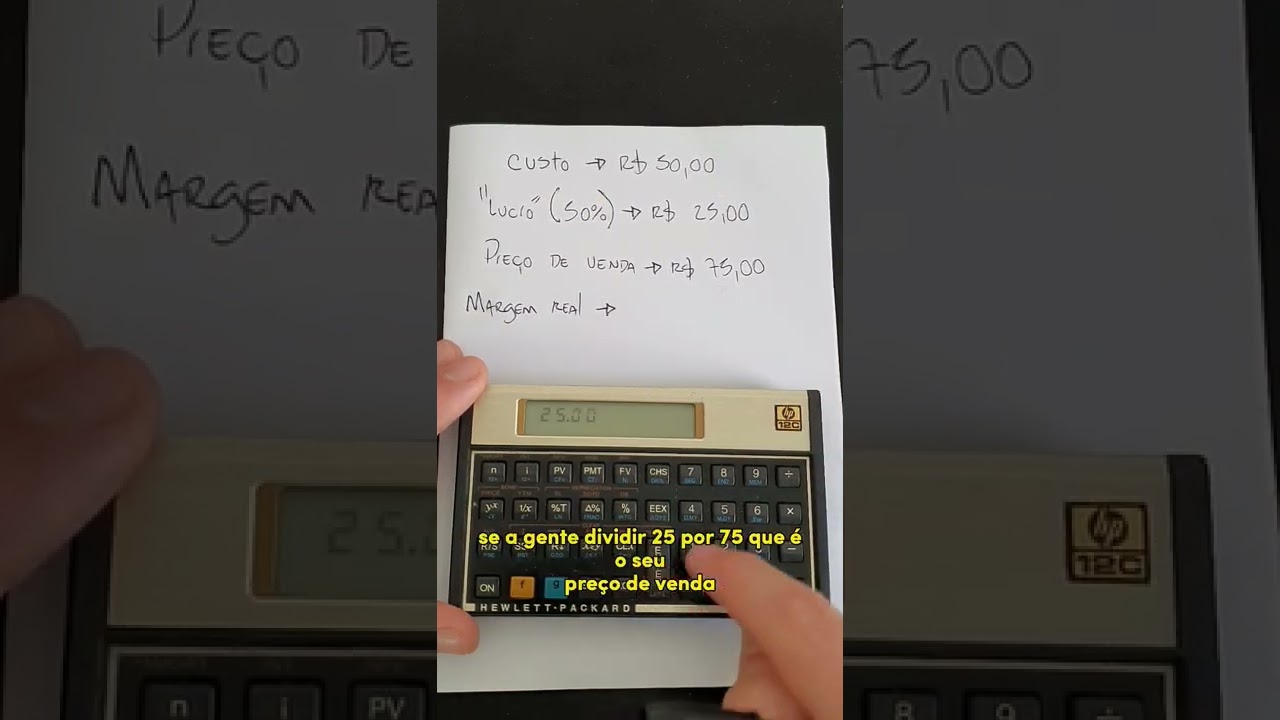 PREÇO DE
75,00
MARGEM REA
CUSTO → R$ 50,00
"LUCRO" (50%) → R$ 25,00
PREÇO DE VENDA → R$ 75,00
MARGEM REAL →
25.00
hp
12C
n i PV PMT FV CHS 7 8 9 ÷
yx 1/x %T Δ% % EEX 4 5 6 ×
R/S
se a gente dividir 25 por 75 que é
o seu
preço de venda
ON f g
HEWLETT·PACKARD
25.0
hp
12C
n i PV
8 9 ÷